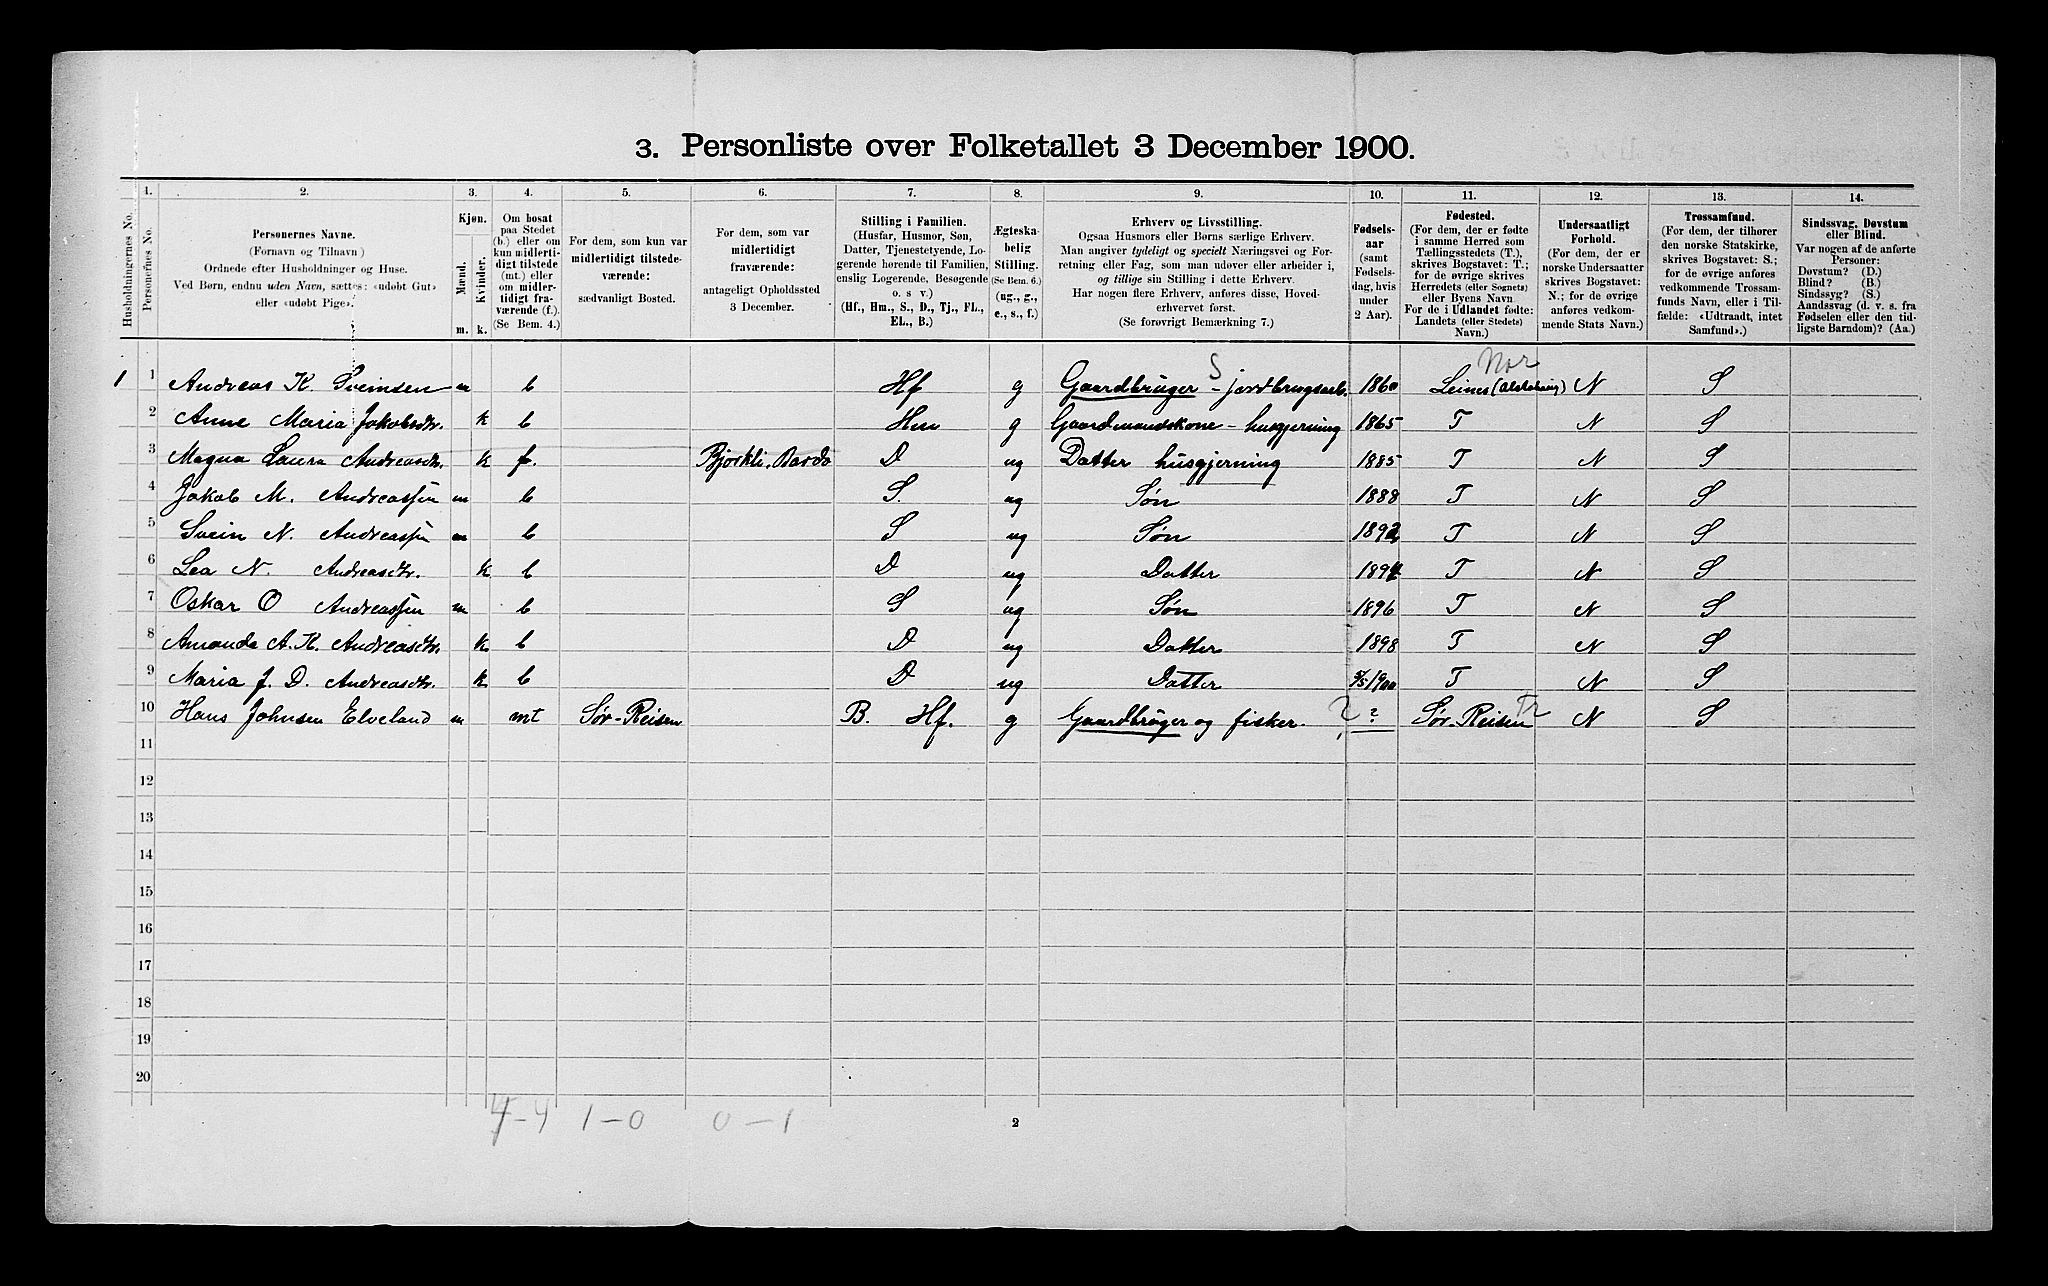 3. Personliste over Folketallet 3 December 1900.
1. 2. 3. 4. 5. 6. 7. 8. 9. 10. 11. 12. 13. 14.
Husholdningernes No.
Personernes No.
Personernes Navne.
(Fornavn og Tilnavn)
Ordnede efter Husholdninger og Huse.
Ved Børn, endnu uden Navn, sættes: «udøbt Gut»
eller «udøbt Pige».
Kjøn.
Mænd.
Kvinder.
m. k.
Om bosat
paa Stedet
(b.) eller om
kun midlerti-
digt tilstede
(mt.) eller
om midler-
tidigt fra-
værende (f.).
(Se Bem. 4.)
For dem, som kun var
midlertidigt tilstede-
værende:
sædvanligt Bosted.
For dem, som var
midlertidigt
fraværende:
antageligt Opholdssted
3 December.
Stilling i Familien.
(Husfar, Husmor, Søn,
Datter, Tjenestetyende, Lo-
gerende hørende til Familien,
enslig Logerende, Besøgende
o. s v.)
(Hf., Hm., S., D., Tj., FL.,
EL., B.)
Ægteska-
belig
Stilling.
(Se Bem. 6.)
(ug., g.,
e., s., f.)
Erhverv og Livsstilling.
Ogsaa Husmors eller Børns særlige Erhverv.
Man angiver tydeligt og specielt Næringsvei og For-
retning eller Fag, som man udøver eller arbeider i,
og tillige sin Stilling i dette Erhverv.
Har nogen flere Erhverv, anføres disse, Hoved-
erhvervet først.
(Se forøvrigt Bemærkning 7.)
Fødsels-
aar
(samt
Fødsels-
dag, hvis
under
2 Aar).
Fødested.
(For dem, der er fødte
i samme Herred som
Tællingsstedets (T.),
skrives Bogstavet: T.;
for de øvrige skrives
Herredets (eller Sognets)
eller Byens Navn
For de i Udlandet fødte:
Landets (eller Stedets)
Navn.)
Undersaatligt
Forhold.
(For dem, der er
norske Undersaatter
skrives Bogstavet:
N.; for de øvrige
anføres vedkom-
mende Stats Navn.)
Trossamfund.
(For dem, der tilhører
den norske Statskirke,
skrives Bogstavet: S.;
for de øvrige anføres
vedkommende Trossam-
funds Navn, eller i Til-
fælde: «Udtraadt, intet
Samfund».)
Sindssvag, Døvstum
eller Blind.
Var nogen af de anførte
Personer:
Døvstum? (D.)
Blind? (B.)
Sindssyg? (S.)
Aandssvag (d. v. s. fra
Fødselen eller den tid-
ligste Barndom)? (Aa.)
S Nor
1 1 Andreas K. Sveinsen m b Hf g Gaardbruger - jordbrugsarb. 1860 Leines (Alstahaug) N S
2 Anne Maria Jakobsdtr. k b Hm g Gaardmandskone - husgjerning 1865 T N S
3 Magna Laura Andreasdtr. k f. Bjorkli, Bardo D ug Datter husgjerning 1885 T N S
4 Jakob M. Andreassen m b S. ug Søn 1888 T N S
5 Svein N. Andreassen m b S ug Søn 1892 T N S
6 Lea N. Andreasdtr. k b D ug Datter 1894 T N S
7 Oskar O Andreassen m b S ug Søn 1896 T N S
8 Amanda A. K. Andreasdtr. k b D ug Datter 1898 T N S
9 Maria J. D. Andreasdtr. k b D ug Datter 3/5 1900 T N S
10 Hans Johnsen Elveland m mt Sør-Reisen B. Hf. g Gaardbruger og fisker. ? ? Sør-Reisen Tr N S
11
12
13
14
15
16
17
18
19
20
4-4 1-0 0-1
2